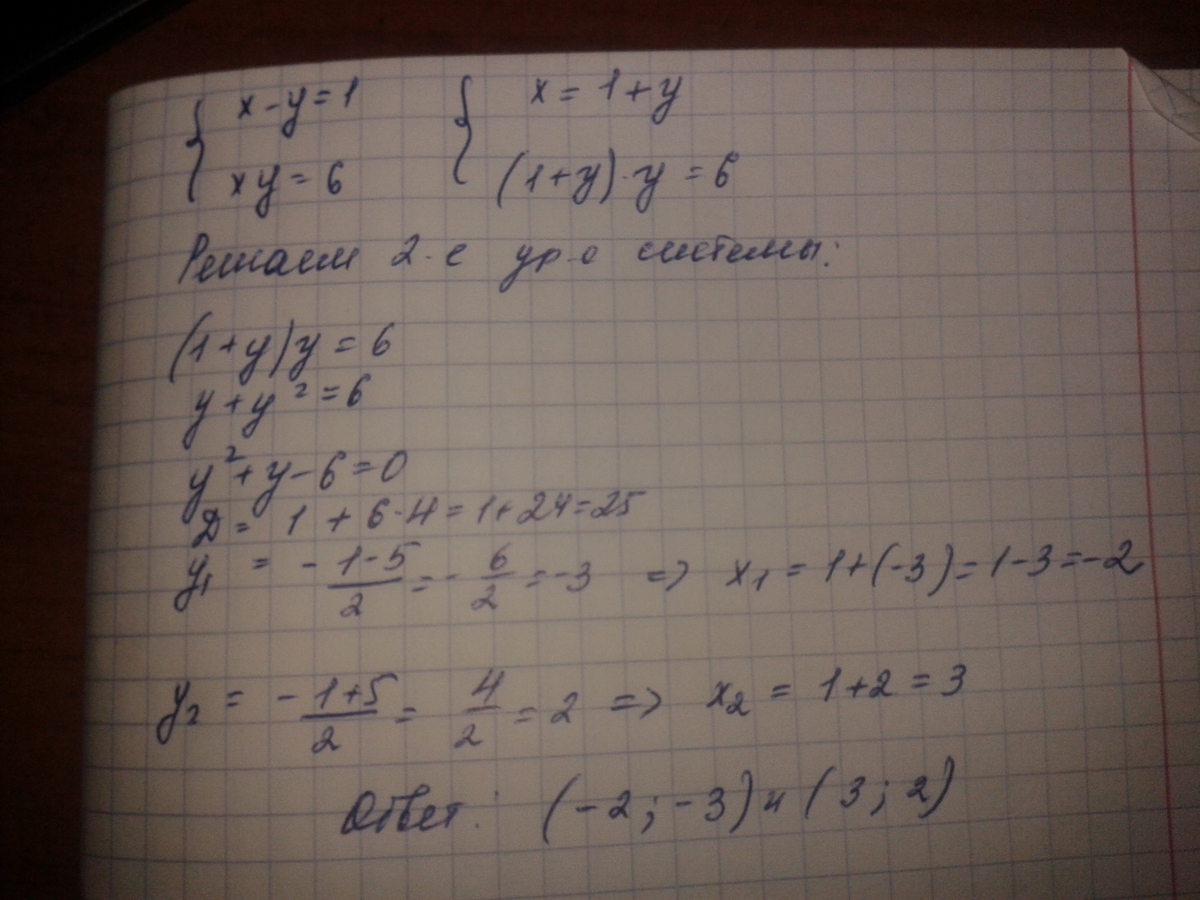 { x-y=1 { x = 1+y
xy = 6 (1+y)·y = 6
Решаем 2-е ур-е системы:
(1+y)y = 6
y + y² = 6
y² + y - 6 = 0
D = 1 + 6·4 = 1 + 24 = 25
y₁ = -1-5/2 = -6/2 = -3 => x₁ = 1+(-3) = 1-3 = -2
y₂ = -1+5/2 = 4/2 = 2 => x₂ = 1+2 = 3
Ответ: (-2; -3) и (3; 2)